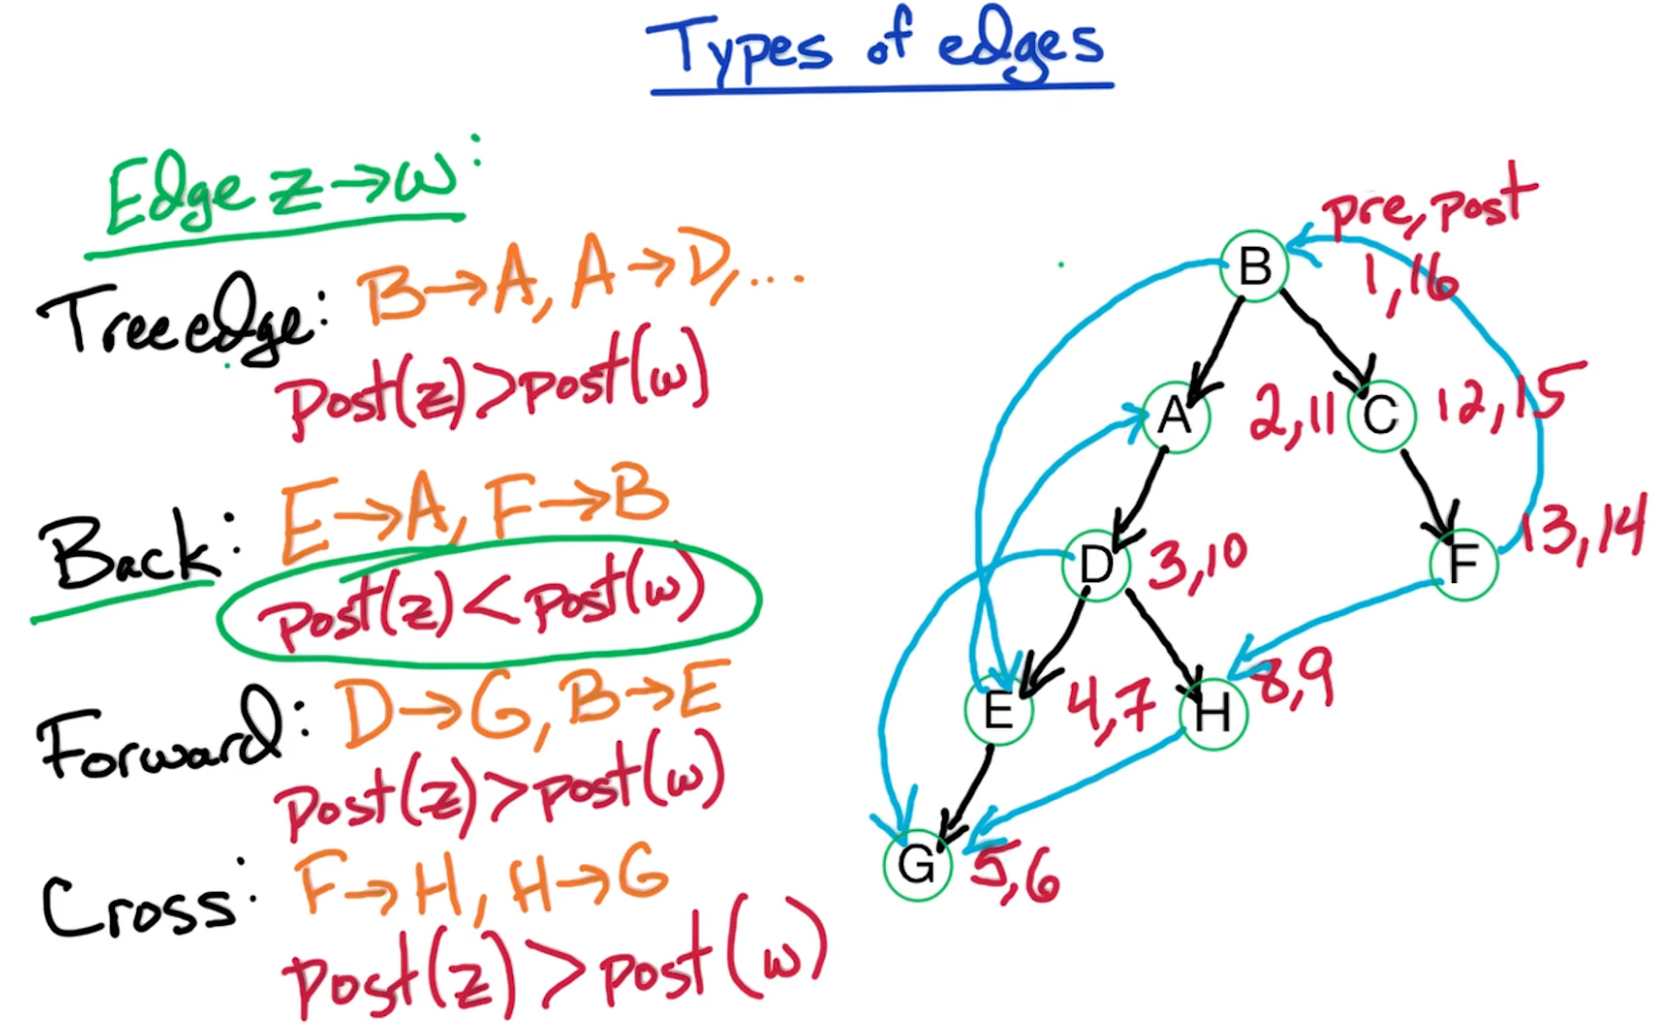 Types of edges
Edge z→w:
Tree edge: B→A, A→D, ...
post(z)>post(w)
Back: E→A, F→B
post(z)<post(w)
Forward: D→G, B→E
post(z)>post(w)
Cross: F→H, H→G
post(z)>post(w)
pre, post
B 1,16
A 2,11 C 12,15
D 3,10 F 13,14
E 4,7 H 8,9
G 5,6